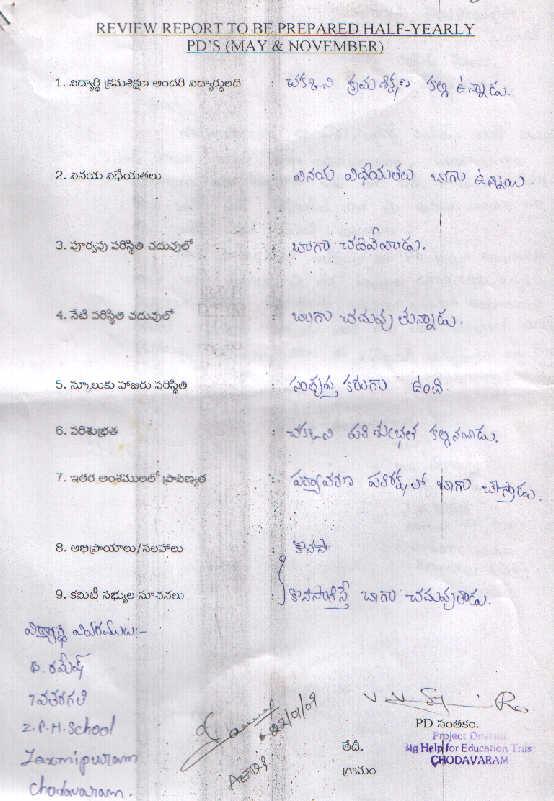 REVIEW REPORT TO BE PREPARED HALF-YEARLY
PD'S (MAY & NOVEMBER)
1. విద్యార్థి క్రమశిక్షణ అందరి విద్యార్థులతో : చక్కని క్రమశిక్షణ కల్గి ఉన్నాడు.
2. వినయ విధేయతలు : వినయ విధేయతలు బాగా ఉన్నాయి
3. పూర్వపు పరిస్థితి చదువులో : బాగా చదివేవాడు.
4. నేటి పరిస్థితి చదువులో : బాగా చదువు తున్నాడు.
5. స్కూలుకు హాజరు పరిస్థితి : సంతృప్తి కరంగా ఉంది.
6. పరిశుభ్రత : చక్కని పరిశుభ్రత కల్గినవాడు.
7. ఇతర అంశములలో ప్రావిణ్యత : పర్యావరణ పరిరక్షణలో బాగా చేస్తాడు.
8. అభిప్రాయాలు/సలహాలు :
9. కమిటీ సభ్యుల సూచనలు : కొనసాగిస్తే బాగా చదువుతాడు.
విద్యార్థి వివరములు:-
రమేష్
7వతరగతి
Z.P.H.School
Laxmipuram
Chodavaram.
02/01/09
PD సంతకం.
తేదీ.
గ్రామం
Project Director
Help for Education Trus
CHODAVARAM